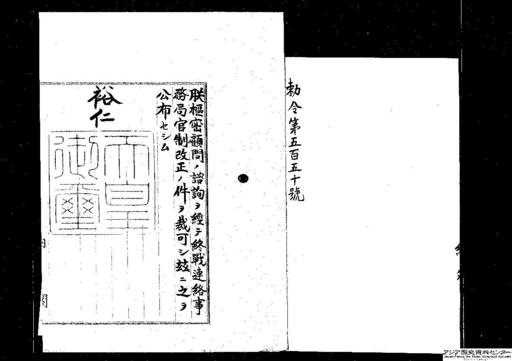 勅令第五百五十號
朕樞密顧問ノ諮詢ヲ經テ終戰連絡事
務局官制改正ノ件ヲ裁可シ玆ニ之ヲ
公布セシム
裕仁
天皇
御璽
内閣
アジア歴史資料センター